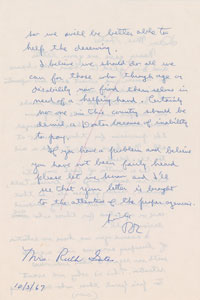 so we will be better able to
help the deserving.
I believe we should do all we
can for those who through age or
disability now find themselves in
need of a helping hand. Certainly
no one in this country should be
denied a Doctor because of inability
to pay.
If you have a problem and believe
you have not been fairly heard
please let me know and I'll
see that your letter is brought
to the attention of the proper agencies.
RR
Mrs. Ruth